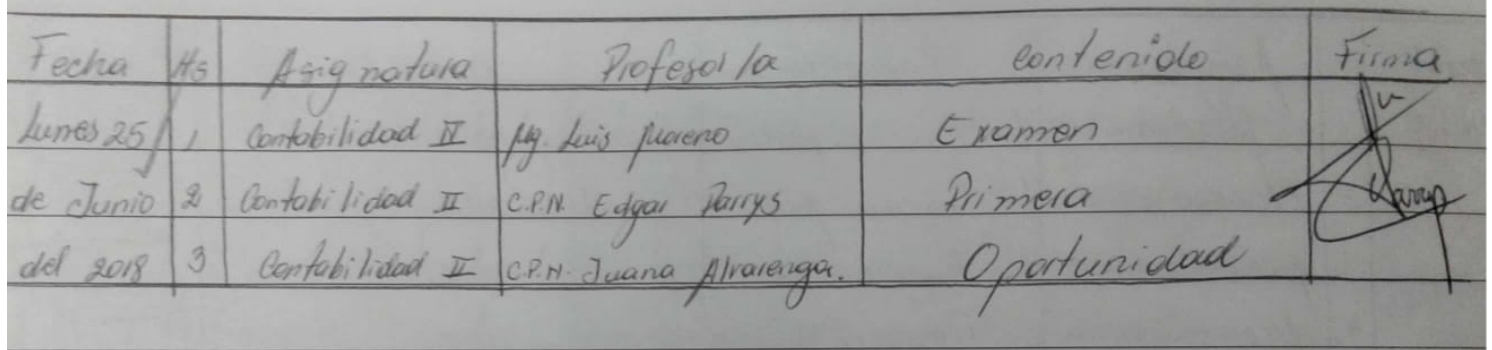 Fecha Hs Asignatura Profesor/a Contenido Firma
Lunes 25 1 Contabilidad II Mg. Luis Moreno Examen
de Junio 2 Contabilidad II C.P.N. Edgar Parrys Primera
del 2018 3 Contabilidad II C.P.N. Juana Alvarenga. Oportunidad